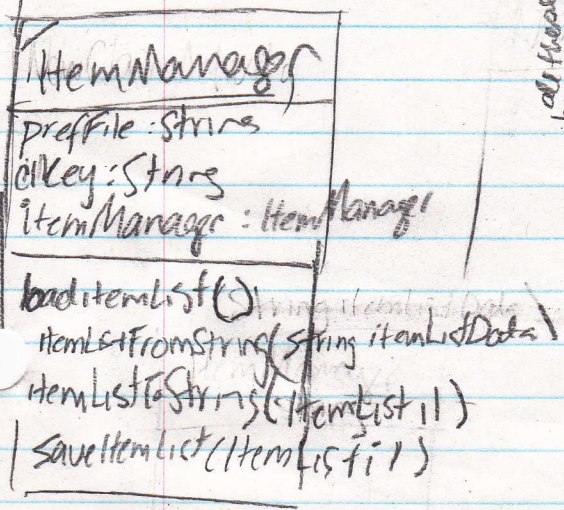 ItemManager
prefFile : String
ilKey : String
itemManager : ItemManager
loadItemList()
itemListFromString(String itemListData)
itemListToString(ItemList il)
saveItemList(ItemList il)